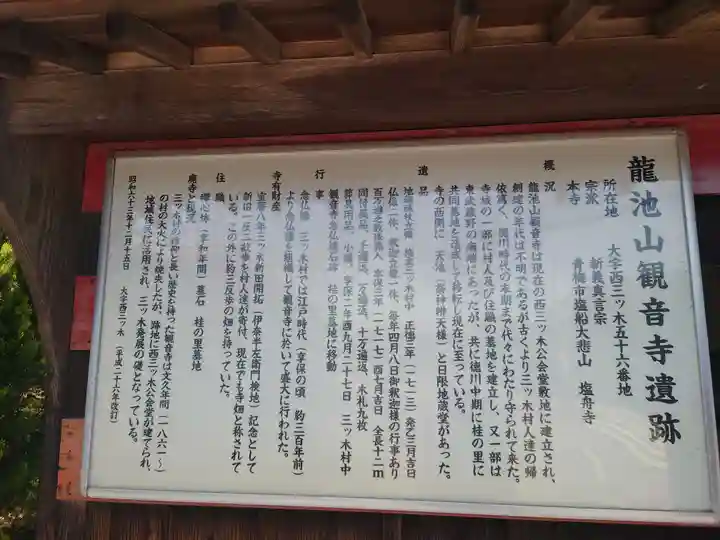 龍池山観音寺遺跡
所在地　大字西三ッ木五十六番地
宗派　新義真言宗
本寺　青梅市塩船大悲山　塩舟寺
概況
龍池山観音寺は現在の西三ッ木公会堂敷地に建立され、
創建の年代は不明であるが古くより三ッ木村人達の帰
依篤く、徳川時代の末期まで代々にわたり守られて来た。
寺域の一部に村人及び住職の墓地を建立し、又一部は
東武蔵野の南端にあったが、共に徳川中期に桂の里に
共同墓地を造成して移転し現在に至っている。
寺の西側に　天地（齋神明天様）と日限地蔵堂があった。
遺品
三ッ木村中　正徳三年（一七一三）癸乙三月吉日
仏像一体、釈迦誕生像一体、毎年四月八日御釈迦様の行事あり
百万遍念数箱 享保二年（一七一七）酉七月吉日　全長十二ｍ
同付属品、千遍返、万遍返、十万遍返、木札九枚
葬具用品、小鐘、享保二年酉九月二十七日　三ッ木村中
観音寺念仏供養石碑　桂の里墓地に移動
行事
念仏講　三ッ木村では江戸時代（享保の頃　約三百年前）
より念仏講を組織して観音寺に於いて盛大に行われた。
寺有財産
宝暦八年三ッ木新田開拓（伊奈半左衛門検地）記念として
新畑一反二畝歩を村人達が寄付、現在でも寺畑と称されて
いる。この外に約三反歩の畑を持っていた。
住職
（享和年間）墓石　桂の里墓地
廃寺と現況
三ッ木村の信仰と長い歴史を持った観音寺は文久年間（一八六一〜）
の村の大火により焼失したが、跡地に西三ッ木公会堂が建てられ、
地域住民に活用され、三ッ木発展の礎となっている。
昭和六十三年十二月十五日　大字西三ッ木　（平成二十六年改訂）